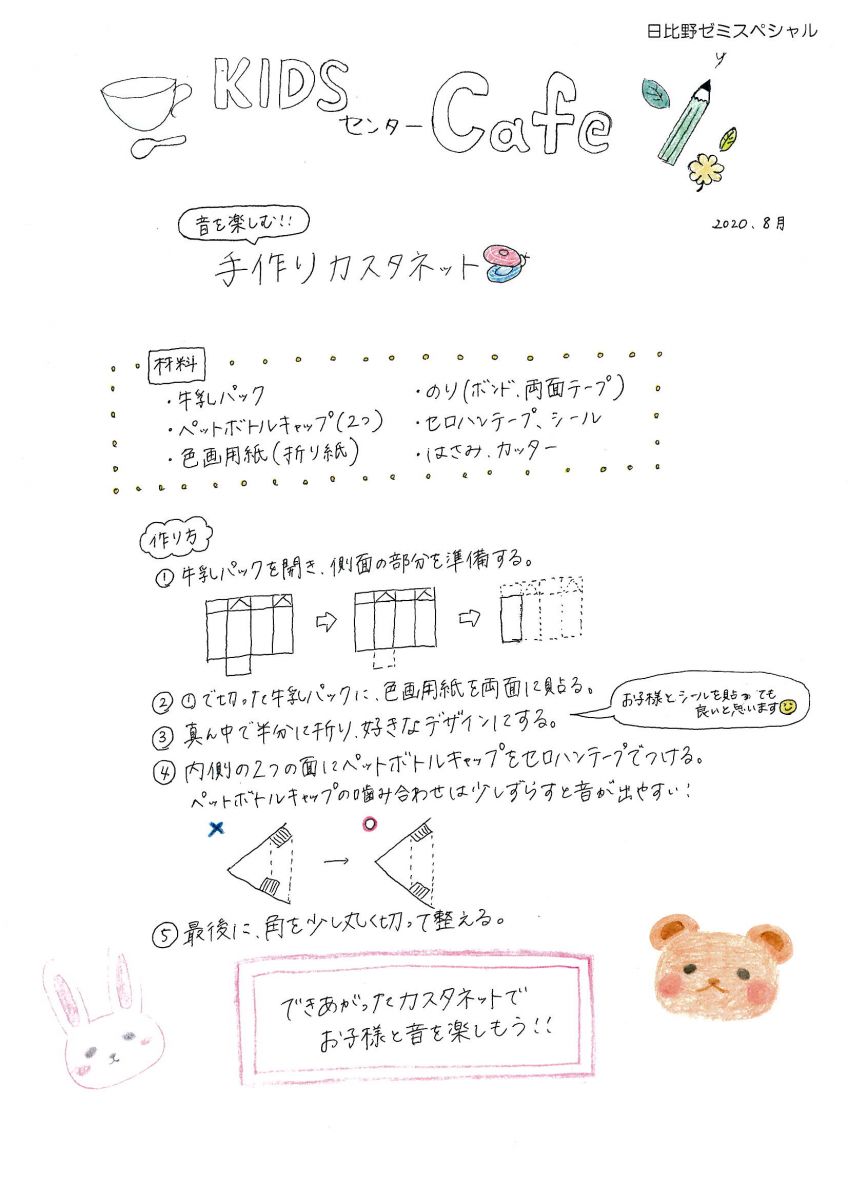 日比野ゼミスペシャル
KIDS
センター Cafe
2020.8月
音を楽しむ!!
手作りカスタネット
材料
・牛乳パック
・ペットボトルキャップ(2つ)
・色画用紙(折り紙)
・のり(ボンド、両面テープ)
・セロハンテープ、シール
・はさみ、カッター
作り方
① 牛乳パックを開き、側面の部分を準備する。
② ①で切った牛乳パックに、色画用紙を両面に貼る。
③ 真ん中で半分に折り、好きなデザインにする。
お子様とシールを貼っても
良いと思います
④ 内側の2つの面にペットボトルキャップをセロハンテープでつける。
ペットボトルキャップの噛み合わせは少しずらすと音が出やすい!
⑤ 最後に、角を少し丸く切って整える。
できあがったカスタネットで
お子様と音を楽しもう!!